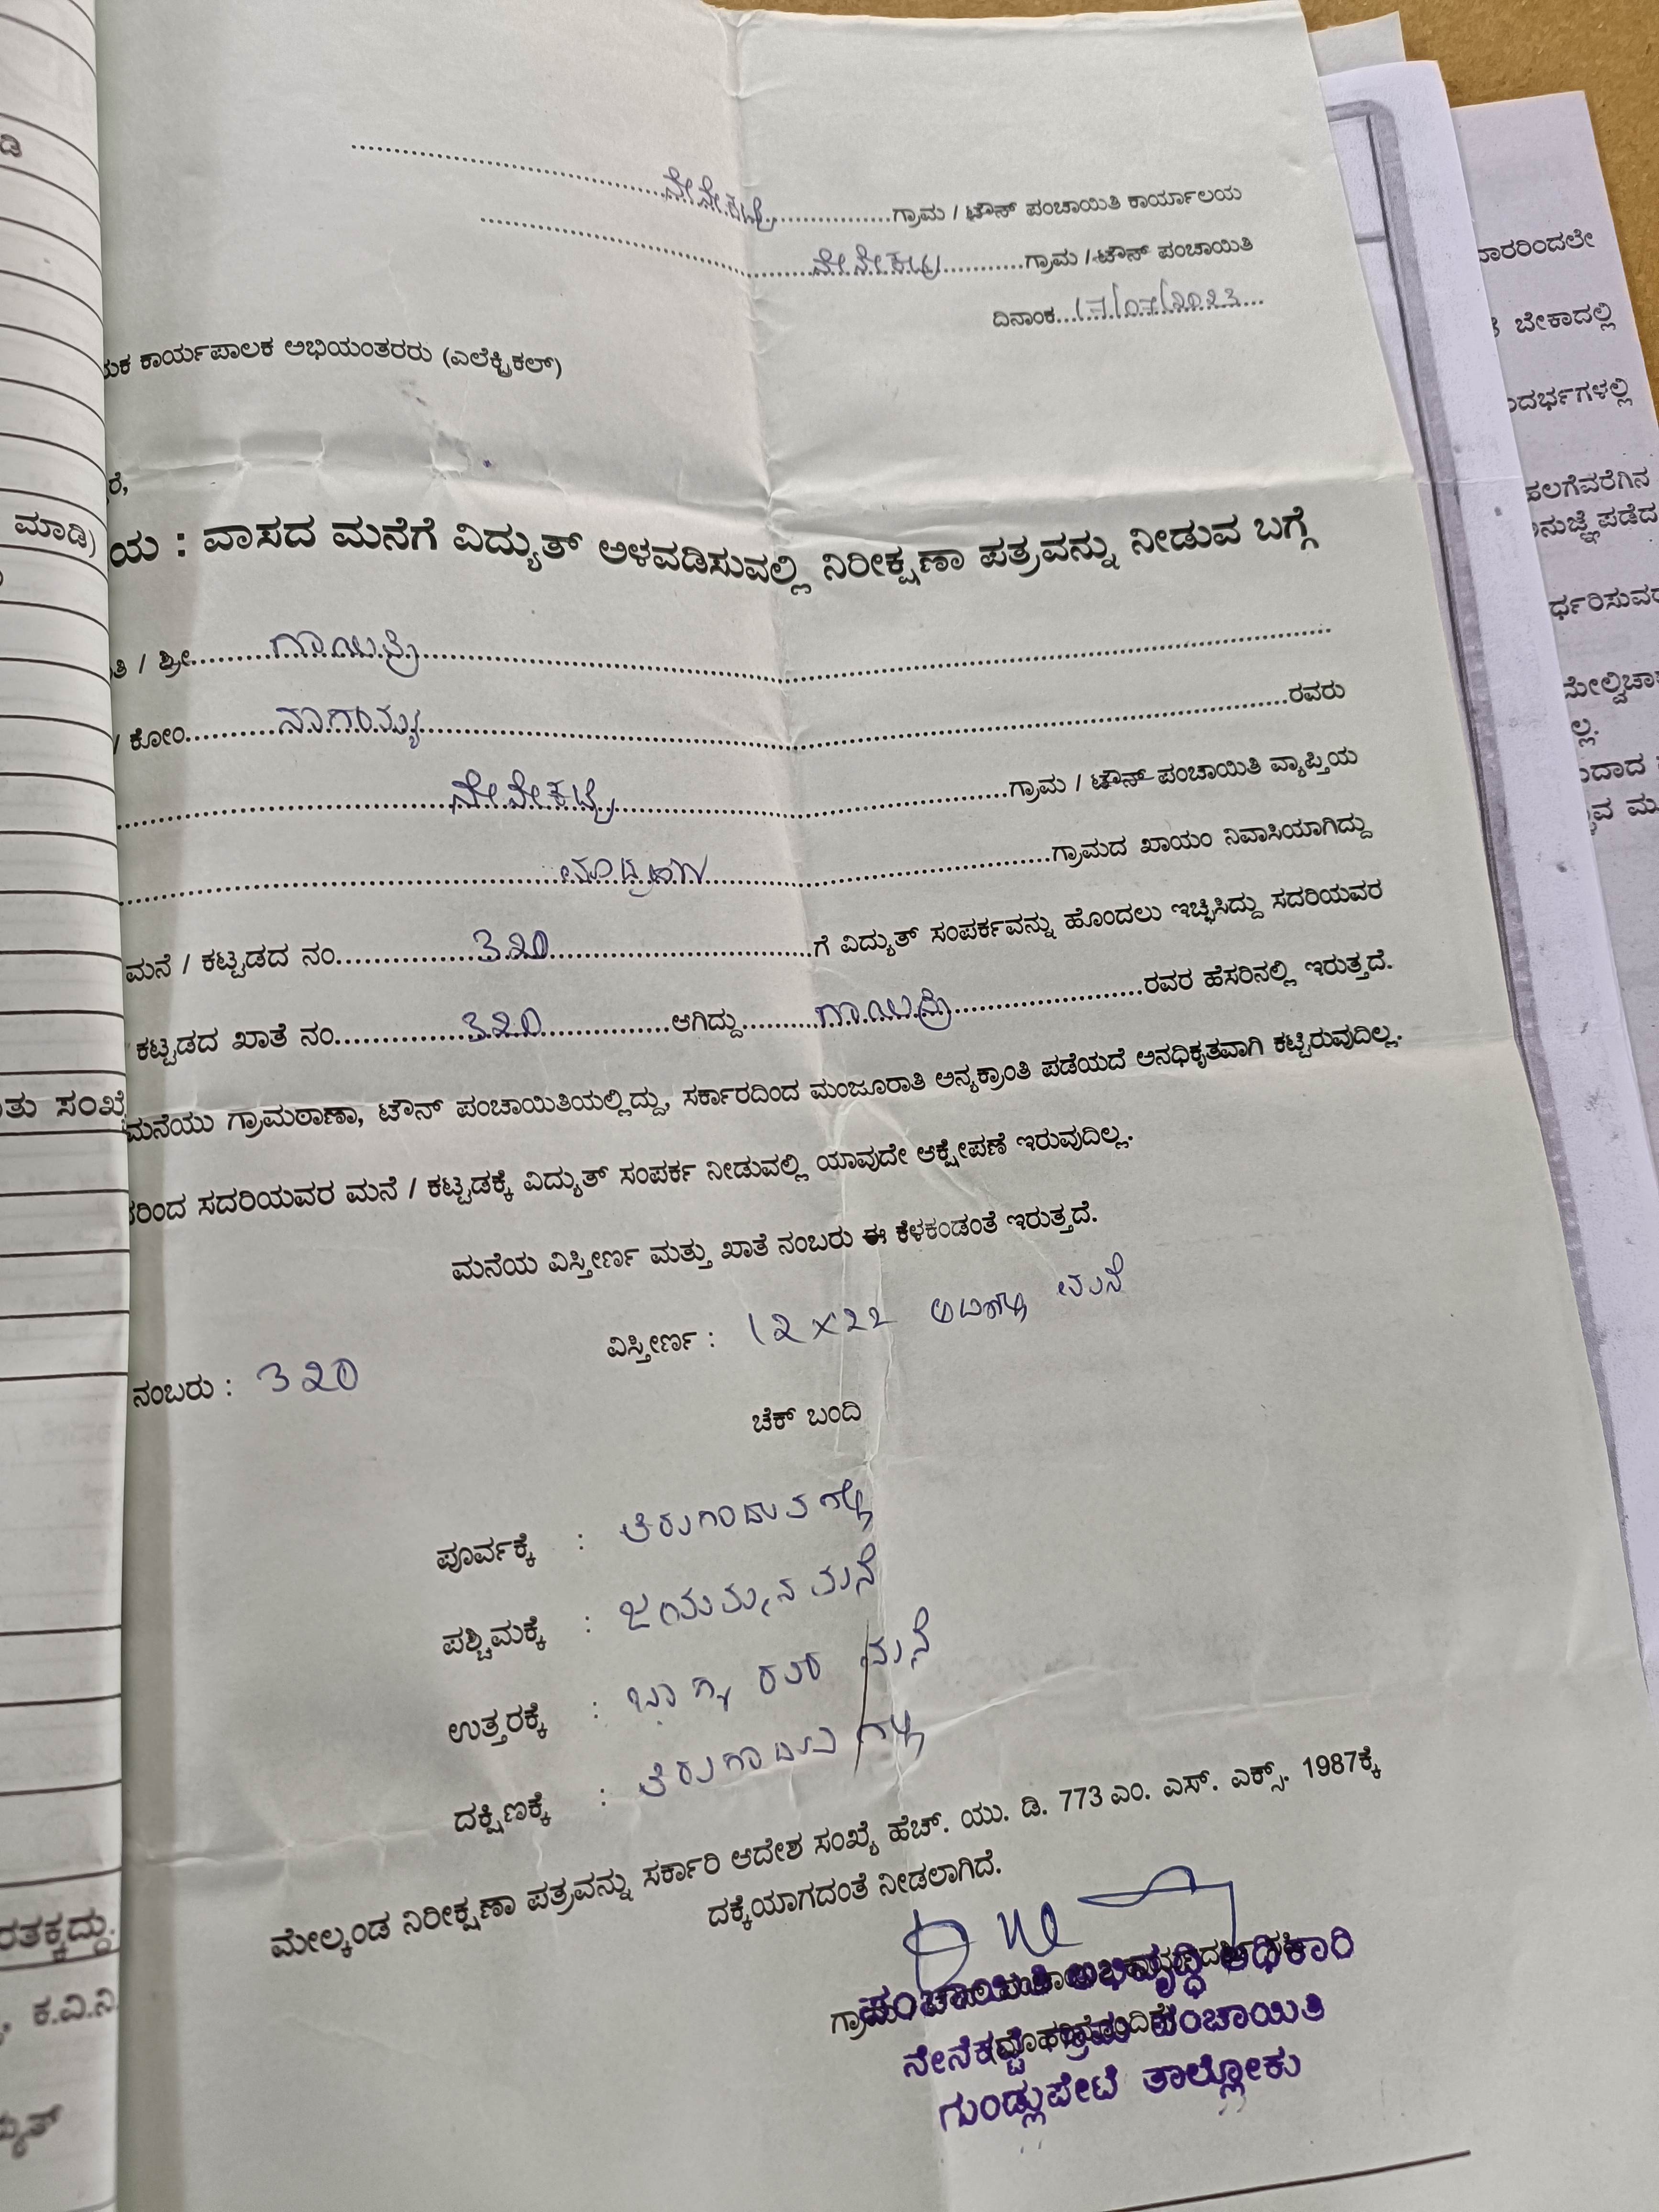 ನೇನೇಕಟ್ಟೆ ಗ್ರಾಮ / ಟೌನ್ ಪಂಚಾಯಿತಿ ಕಾರ್ಯಾಲಯ
ನೇನೇಕಟ್ಟೆ ಗ್ರಾಮ / ಟೌನ್ ಪಂಚಾಯಿತಿ
ದಿನಾಂಕ 17/07/2023
ಕಾರ್ಯಪಾಲಕ ಅಭಿಯಂತರರು (ಎಲೆಕ್ಟ್ರಿಕಲ್)
ರೆ,
ಯ : ವಾಸದ ಮನೆಗೆ ವಿದ್ಯುತ್ ಅಳವಡಿಸುವಲ್ಲಿ ನಿರೀಕ್ಷಣಾ ಪತ್ರವನ್ನು ನೀಡುವ ಬಗ್ಗೆ
ತಿ / ಶ್ರೀ ಗಾಯಿತ್ರಿ
/ ಕೋಂ ನಾಗಯ್ಯ ರವರು
ನೇನೇಕಟ್ಟೆ ಗ್ರಾಮ / ಟೌನ್ ಪಂಚಾಯಿತಿ ವ್ಯಾಪ್ತಿಯ
ಗ್ರಾಮದ ಖಾಯಂ ನಿವಾಸಿಯಾಗಿದ್ದು
ಮನೆ / ಕಟ್ಟಡದ ನಂ 320 ಗೆ ವಿದ್ಯುತ್ ಸಂಪರ್ಕವನ್ನು ಹೊಂದಲು ಇಚ್ಛಿಸಿದ್ದು ಸದರಿಯವರ
ಕಟ್ಟಡದ ಖಾತೆ ನಂ 320 ಆಗಿದ್ದು ಗಾಯಿತ್ರಿ ರವರ ಹೆಸರಿನಲ್ಲಿ ಇರುತ್ತದೆ.
ಮನೆಯು ಗ್ರಾಮಠಾಣಾ, ಟೌನ್ ಪಂಚಾಯಿತಿಯಲ್ಲಿದ್ದು, ಸರ್ಕಾರದಿಂದ ಮಂಜೂರಾತಿ ಅನ್ಯಕ್ರಾಂತಿ ಪಡೆಯದೆ ಅನಧಿಕೃತವಾಗಿ ಕಟ್ಟಿರುವುದಿಲ್ಲ.
ರಿಂದ ಸದರಿಯವರ ಮನೆ / ಕಟ್ಟಡಕ್ಕೆ ವಿದ್ಯುತ್ ಸಂಪರ್ಕ ನೀಡುವಲ್ಲಿ ಯಾವುದೇ ಆಕ್ಷೇಪಣೆ ಇರುವುದಿಲ್ಲ.
ಮನೆಯ ವಿಸ್ತೀರ್ಣ ಮತ್ತು ಖಾತೆ ನಂಬರು ಈ ಕೆಳಕಂಡಂತೆ ಇರುತ್ತದೆ.
ವಿಸ್ತೀರ್ಣ : 12x22 ಅಡಿಗಳು ಮನೆ
ನಂಬರು : 320
ಚೆಕ್ ಬಂದಿ
ಪೂರ್ವಕ್ಕೆ :
ಪಶ್ಚಿಮಕ್ಕೆ : ಜಯಮ್ಮನ ಮನೆ
ಉತ್ತರಕ್ಕೆ : ಭಾಗ್ಯ ರವರ ಮನೆ
ದಕ್ಷಿಣಕ್ಕೆ :
ಮೇಲ್ಕಂಡ ನಿರೀಕ್ಷಣಾ ಪತ್ರವನ್ನು ಸರ್ಕಾರಿ ಆದೇಶ ಸಂಖ್ಯೆ ಹೆಚ್. ಯು. ಡಿ. 773 ಎಂ. ಎಸ್. ಎಕ್ಸ್. 1987ಕ್ಕೆ
ದಕ್ಕೆಯಾಗದಂತೆ ನೀಡಲಾಗಿದೆ.
ಪಂಚಾಯಿತಿ ಅಭಿವೃದ್ಧಿ ಅಧಿಕಾರಿ
ನೇನೆಕಟ್ಟೆ ಗ್ರಾಮ ಪಂಚಾಯಿತಿ
ಗುಂಡ್ಲುಪೇಟೆ ತಾಲ್ಲೋಕು
ಮಾಡಿ)
ತು ಸಂಖ್ಯೆ
ರತಕ್ಕದ್ದು.
ಕ.ವಿ.ನಿ.
ವಾರರಿಂದಲೇ
ಬೇಕಾದಲ್ಲಿ
ಂದರ್ಭಗಳಲ್ಲಿ
ಹಲಗೆವರೆಗಿನ
ನುಜ್ಞೆ ಪಡೆದ
ರ್ಧರಿಸುವ
ಮೇಲ್ವಿಚಾ
ಲ್ಲ.